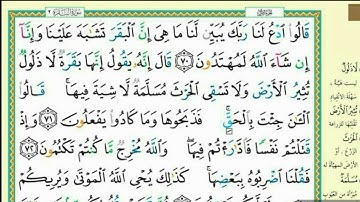 قَالُوا۟ ٱدْعُ لَنَا رَبَّكَ يُبَيِّن لَّنَا مَا هِىَ إِنَّ ٱلْبَقَرَ تَشَٰبَهَ عَلَيْنَا وَإِنَّآ
إِن شَآءَ ٱللَّهُ لَمُهْتَدُونَ ٧٠ قَالَ إِنَّهُۥ يَقُولُ إِنَّهَا بَقَرَةٌ لَّا ذَلُولٌ
تُثِيرُ ٱلْأَرْضَ وَلَا تَسْقِى ٱلْحَرْثَ مُسَلَّمَةٌ لَّا شِيَةَ فِيهَا ۚ قَالُوا۟
ٱلْـَٰٔنَ جِئْتَ بِٱلْحَقِّ ۚ فَذَبَحُوهَا وَمَا كَادُوا۟ يَفْعَلُونَ ٧١ وَإِذْ
قَتَلْتُمْ نَفْسًا فَٱدَّٰرَْٰٔتُمْ فِيهَا ۖ وَٱللَّهُ مُخْرِجٌ مَّا كُنتُمْ تَكْتُمُونَ ٧٢
فَقُلْنَا ٱضْرِبُوهُ بِبَعْضِهَا ۚ كَذَٰلِكَ يُحْىِ ٱللَّهُ ٱلْمَوْتَىٰ وَيُرِيكُمْ